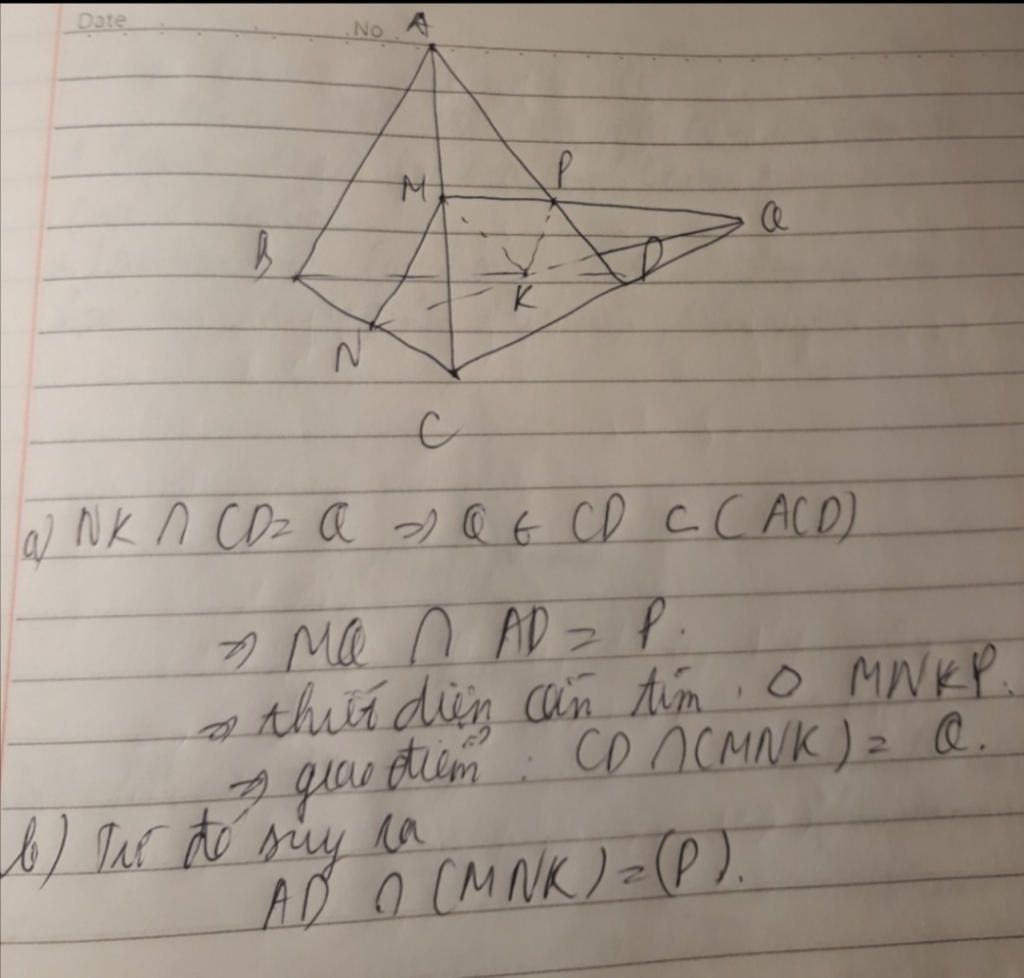 Date No
A
M P
Q
B D
K
N
C
a) NK ∩ CD = Q => Q ∈ CD ⊂ (ACD)
=> MQ ∩ AD = P.
=> thiết diện cần tìm. ◊ MNKP.
=> giao điểm: CD ∩ (MNK) = Q.
b) Từ đó suy ra
AD ∩ (MNK) = (P).